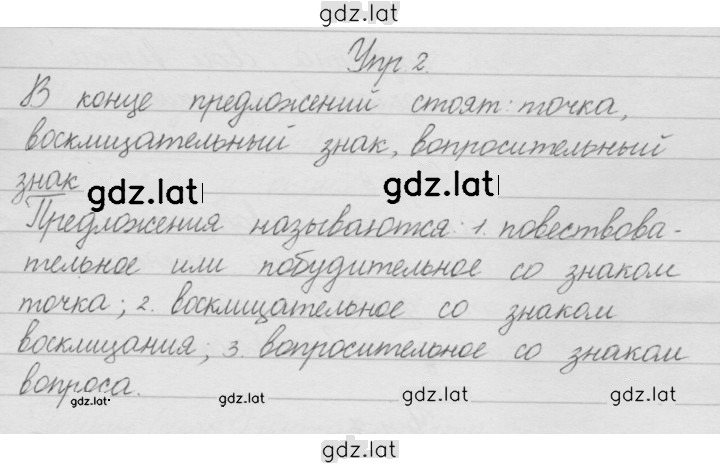 gdz.lat
Упр 2.
В конце предложений стоят: точка,
восклицательный знак, вопросительный
знак
gdz.lat gdz.lat
Предложения называются: 1. повествова-
тельное или побудительное со знаком
точка; 2. восклицательное со знаком
восклицания; 3. вопросительное со знаком
вопроса.
gdz.lat gdz.lat gdz.lat gdz.lat
gdz.lat